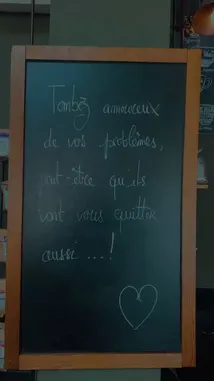 Tombez amoureux
de vos problèmes,
peut-être qu'ils
vont vous quitter
aussi ...!